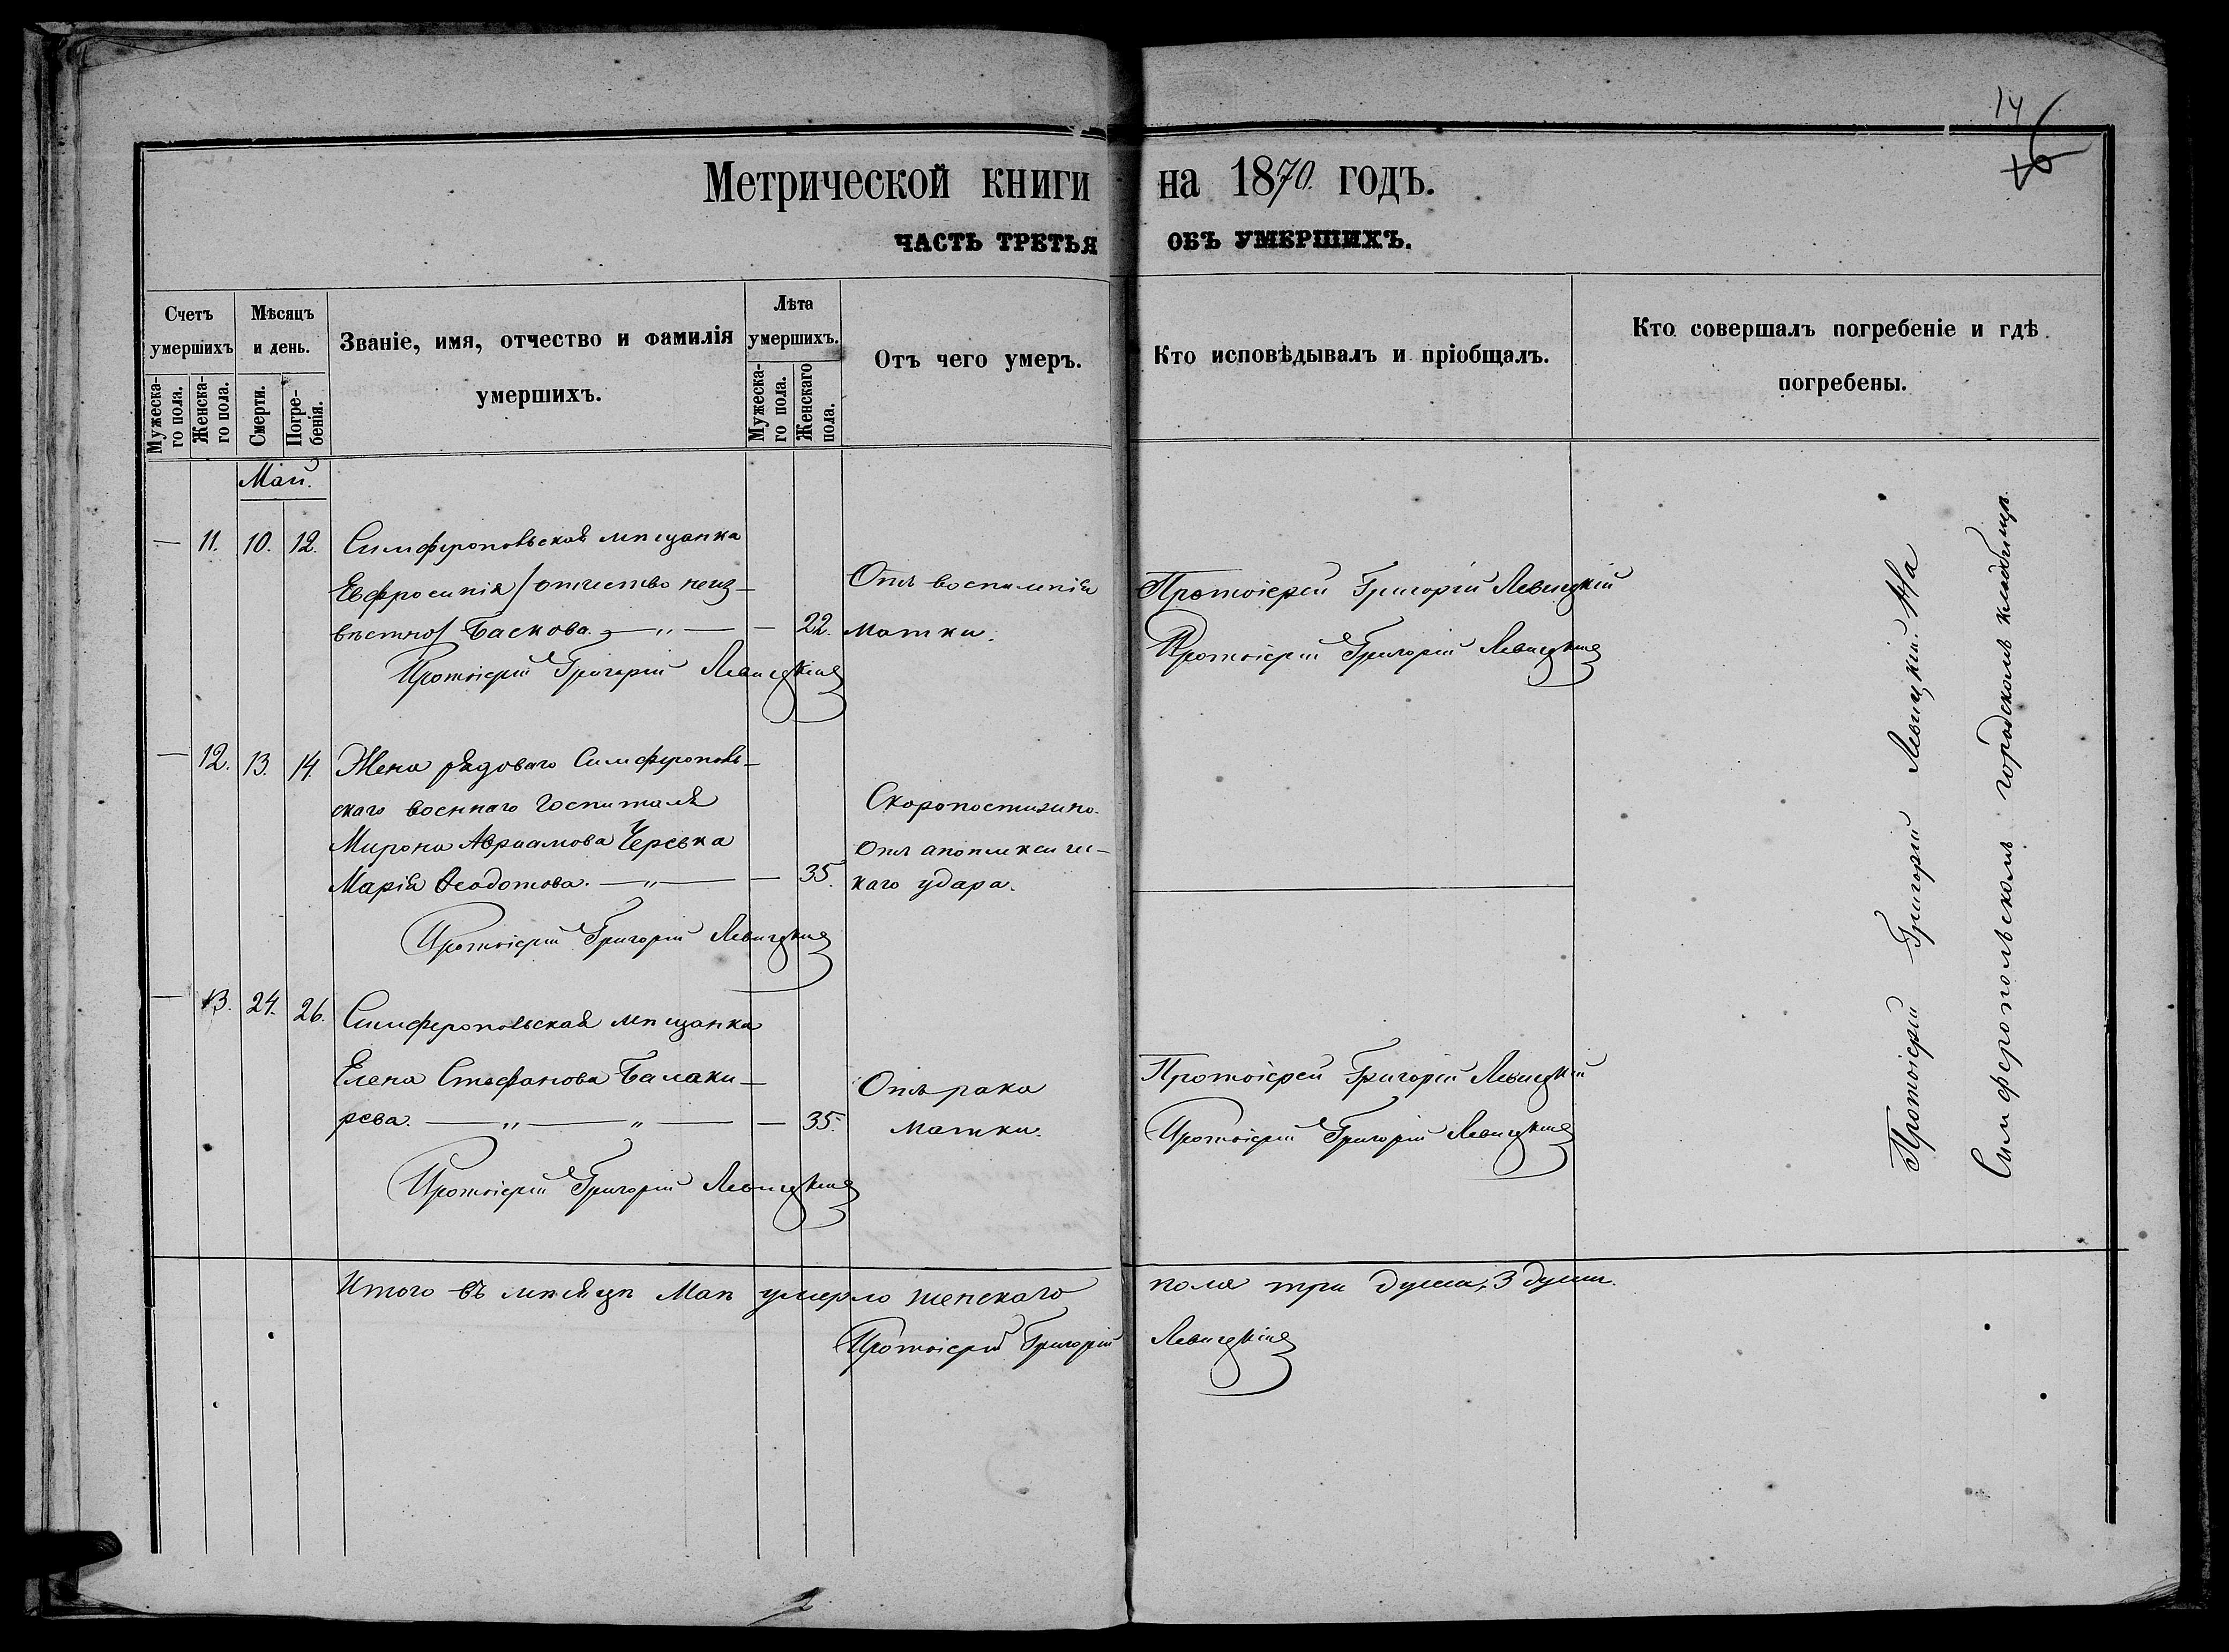 14
Метрической книги на 1870. годъ.
ЧАСТЬ ТРЕТЬЯ ОБЪ УМЕРШИХЪ.
Счетъ умершихъ
Мужеска-го пола.
Женска-го пола.
Мѣсяцъ и день.
Смерти.
Погре-бенія.
Званіе, имя, отчество и фамилія
умершихъ.
Лѣта умершихъ.
Мужеска-го пола.
Женскаго пола.
Отъ чего умеръ.
Кто исповѣдывалъ и пріобщалъ.
Кто совершалъ погребеніе и гдѣ
погребены.
Май.
— 11. 10. 12. Симферопольская мѣщанка
Евфросинія /отчество неиз-
вѣстно/ Баскова. — „ — — 22.
Отъ воспаленія
матки.
Протоіерей Григорій Левицкій
Протоіерей Григорій Левицкій
Протоіерей Григорій Левицкій
— 12. 13. 14. Жена рядоваго Симферополь-
скаго военнаго госпиталя
Мирона Авраамова Черевка
Марія Ѳеодотова. — „ — — 35.
Скоропостижно.
Отъ апоплексичес-
каго удара.
Протоіерей Григорій Левицкій
— 13. 24. 26. Симферопольская мѣщанка
Елена Стефанова Балаки-
рева. — „ — „ — — 35.
Отъ рака
матки.
Протоіерей Григорій Левицкій
Протоіерей Григорій Левицкій
Протоіерей Григорій Левицкій
Протоіерей Григорій Левицкій. На
Симферопольскомъ городскомъ кладбищѣ.
Итого въ мѣсяцѣ Маѣ умерло женскаго пола три души, 3 души.
Протоіерей Григорій Левицкій
2